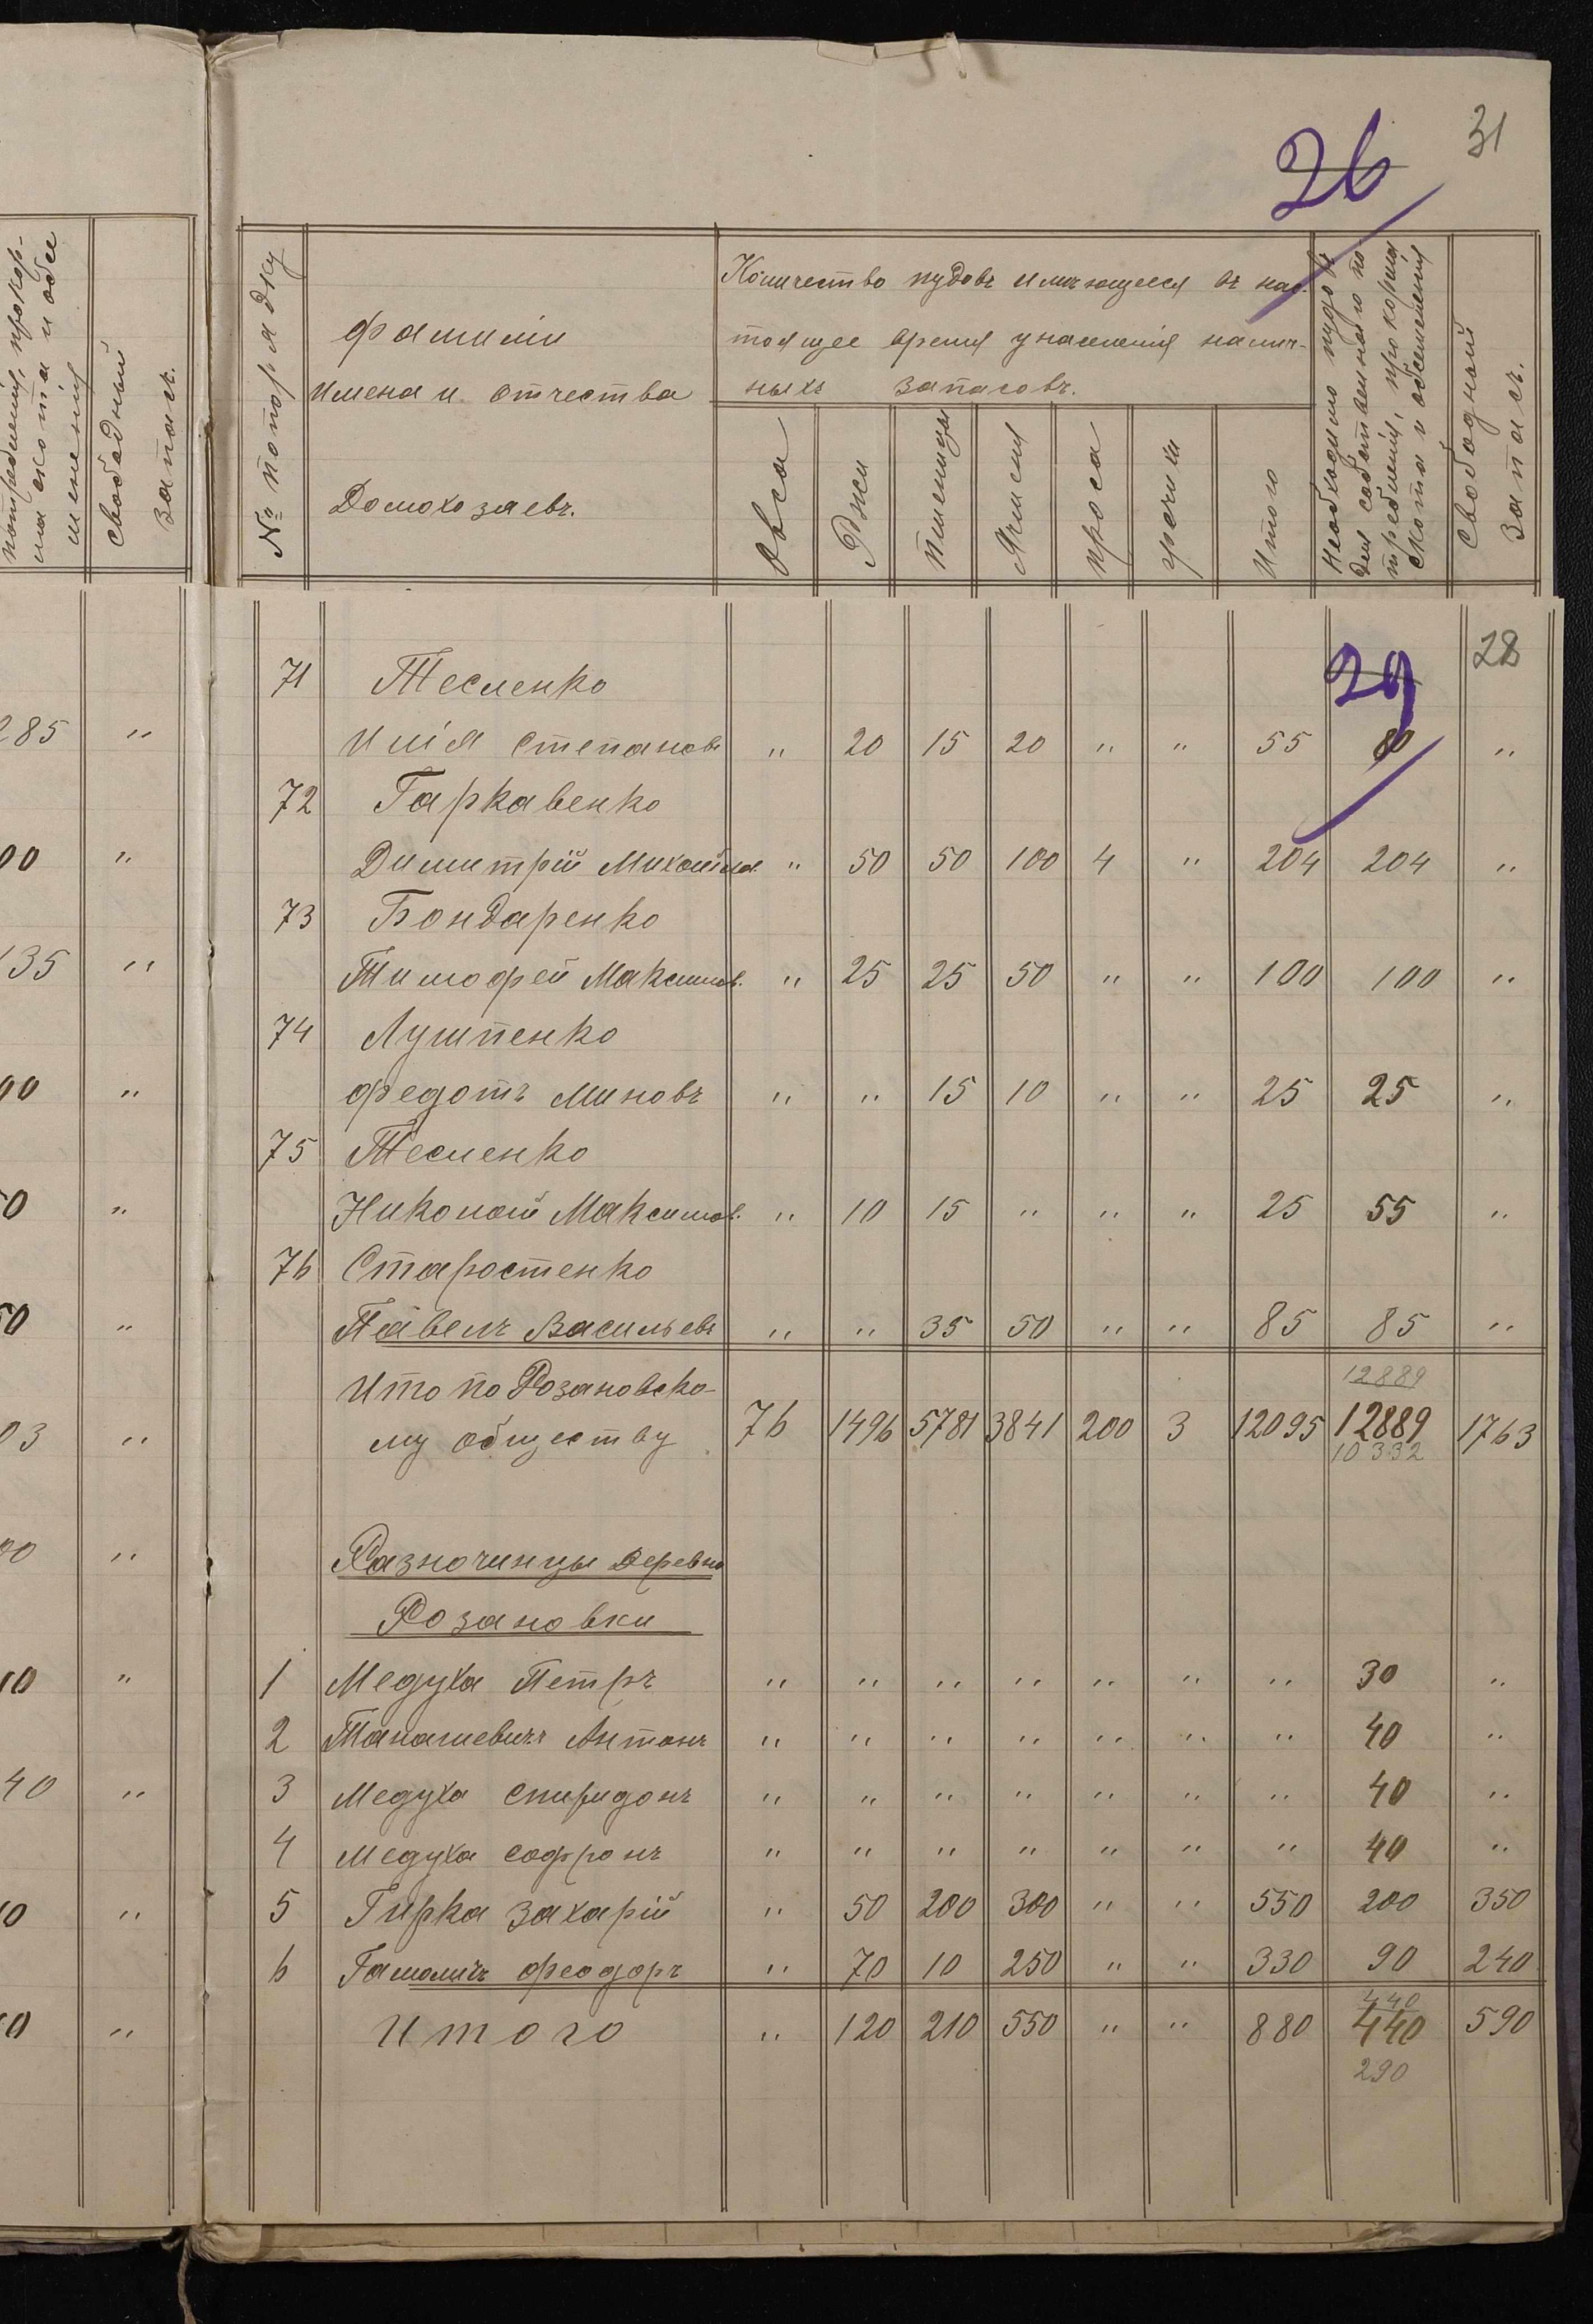 потребленія, прокор-
ма скота и обсе
мененія
Свободный
запасъ.
285 "
00 "
135 "
00 "
50 "
50 "
03 "
00 "
10 "
40 "
10 "
10 "
31
26
№ по порядку
Фамиліи
Имена и отчества
Домохозяевъ.
Количество пудовъ имѣющееся въ нас-
тоящее время у населенія налич-
ныхъ запасовъ.
Овса
Ржи
Пшеницы
Ячменя
проса
гречихи
Итого
Необходимо пудовъ
для собственнаго по
требленія, прокорма
скота и обсемененія
Свободный
Запасъ.
29 28
71 Тесленко
Илія Степановъ " 20 15 20 " " 55 80 "
72 Гаркавенко
Димитрій Михайлов. " 50 50 100 4 " 204 204 "
73 Бондаренко
Тимофей Максимов. " 25 25 50 " " 100 100 "
74 Лушпенко
Федотъ Миновъ " " 15 10 " " 25 25 "
75 Тесленко
Николай Максимов. " 10 15 " " " 25 55 "
76 Старостенко
Павелъ Васильевъ " " 35 50 " " 85 85 "
12889
Ито по Розановско-
му обществу 76 1496 5781 3841 200 3 12095 12889 1763
10332
Разночинцы деревни
Розановки
1 Медуха Петръ " " " " " " " 30 "
2 Антонъ " " " " " " " 40 "
3 Медуха Спиридонъ " " " " " " " 40 "
4 Медуха Софронъ " " " " " " " 40 "
5 Гирка Захарій " 50 200 300 " " 550 200 350
6 Феодоръ " 70 10 250 " " 330 90 240
440
Итого " 120 210 550 " " 880 440 590
290